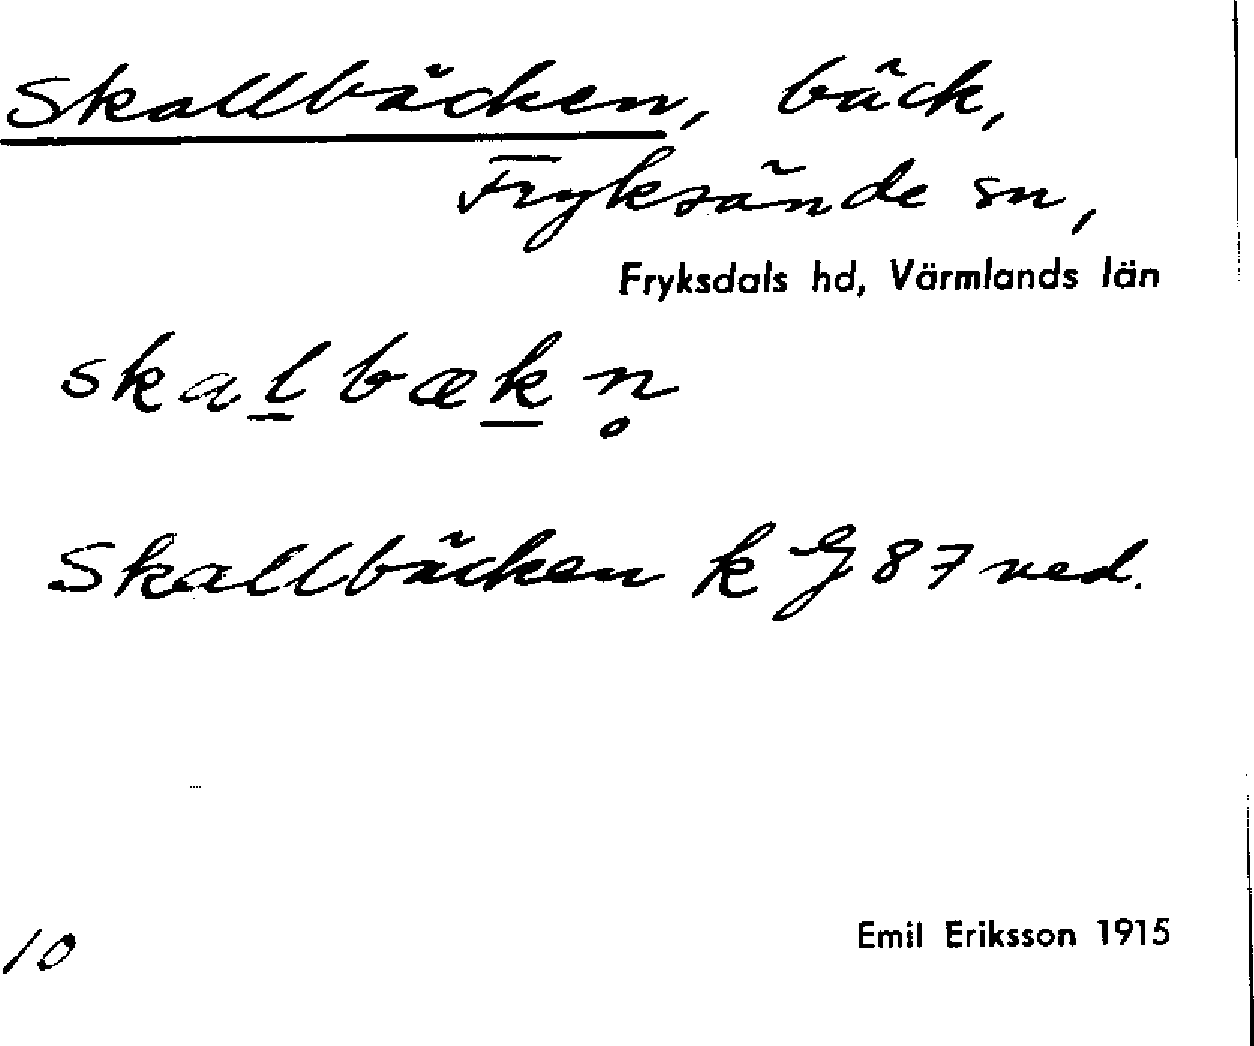 Skallbäcken, bäck,
Fryksände sn,
Fryksdals hd, Värmlands län
skal̲bæk̲n̥
Skallbäcken k G 87 ned.
10
Emil Eriksson 1915